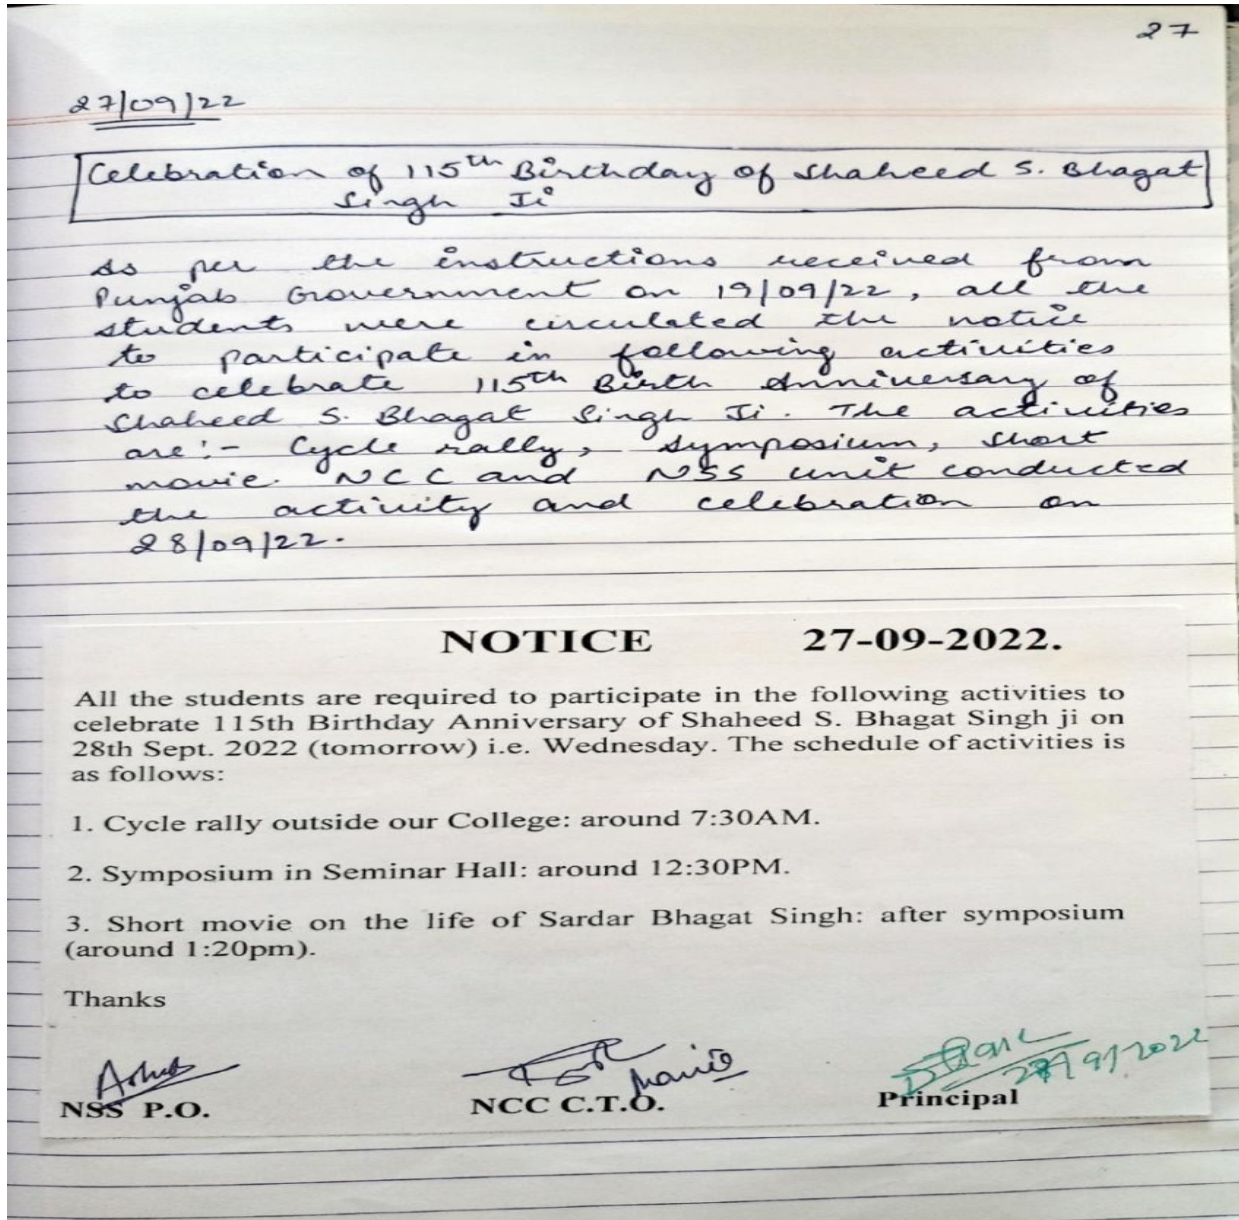 27
27/09/22
Celebration of 115th Birthday of Shaheed S. Bhagat
Singh Ji
As per the instructions received from
Punjab Government on 19/09/22, all the
students were circulated the notice
to participate in following activities
to celebrate 115th Birth Anniversary of
Shaheed S. Bhagat Singh Ji. The activities
are:- Cycle rally, Symposium, Short
movie. NCC and NSS unit conducted
the activity and celebration on
28/09/22.
NOTICE 27-09-2022.
All the students are required to participate in the following activities to
celebrate 115th Birthday Anniversary of Shaheed S. Bhagat Singh ji on
28th Sept. 2022 (tomorrow) i.e. Wednesday. The schedule of activities is
as follows:
1. Cycle rally outside our College: around 7:30AM.
2. Symposium in Seminar Hall: around 12:30PM.
3. Short movie on the life of Sardar Bhagat Singh: after symposium
(around 1:20pm).
Thanks
27/9/2022
NSS P.O. NCC C.T.O. Principal